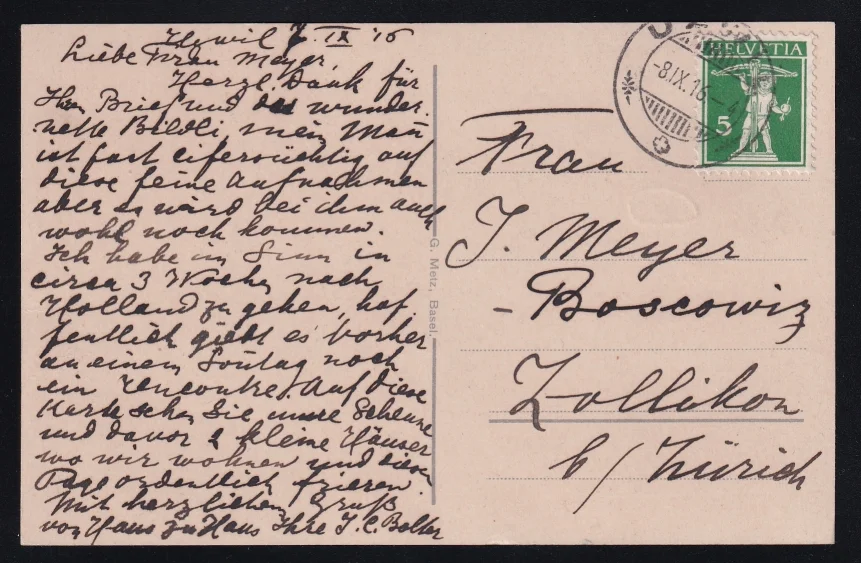 7 IX '16
Liebe Frau Meyer,
Herzl. Dank für
Ihren Brief und das wunder
nette Bildli, mein Mann
ist fast eifersüchtig auf
diese feine Aufnahmen
aber es wird bei ihm auch
wohl noch kommen.
Ich habe im Sinn in
circa 3 Wochen nach
Holland zu gehen, hof
fentlich giebt es vorher
an einem Sontag noch
ein rencontre. Auf diese
Karte sehen Sie unsere Scheune
und davor 2 kleine Häuser
wo wir wohnen und diesen
Tage ordentlich frieren.
Mit herzlichen Gruß
von Haus zu Haus Ihre J. C.
G. Metz, Basel.
HELVETIA
5
-8.IX.16.-4
Frau
J. Meyer
- Boscowiz
Zollikon
b/ Zürich